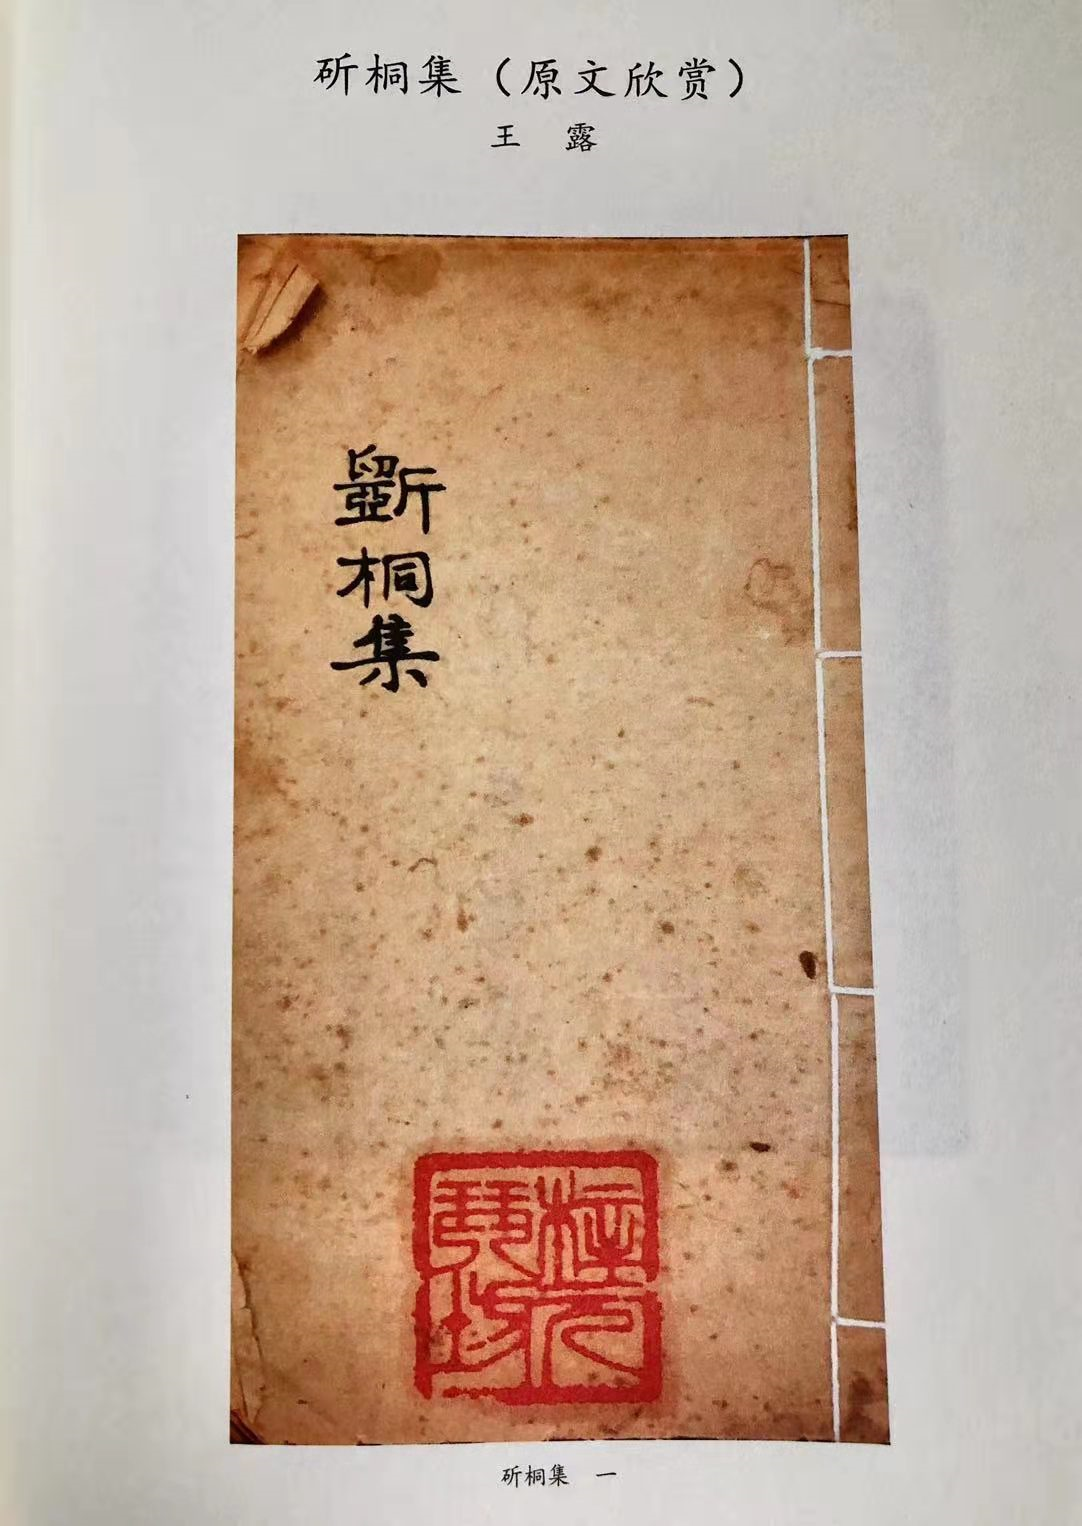 斫桐集（原文欣赏）
王 露
斲桐集
斫桐集 一